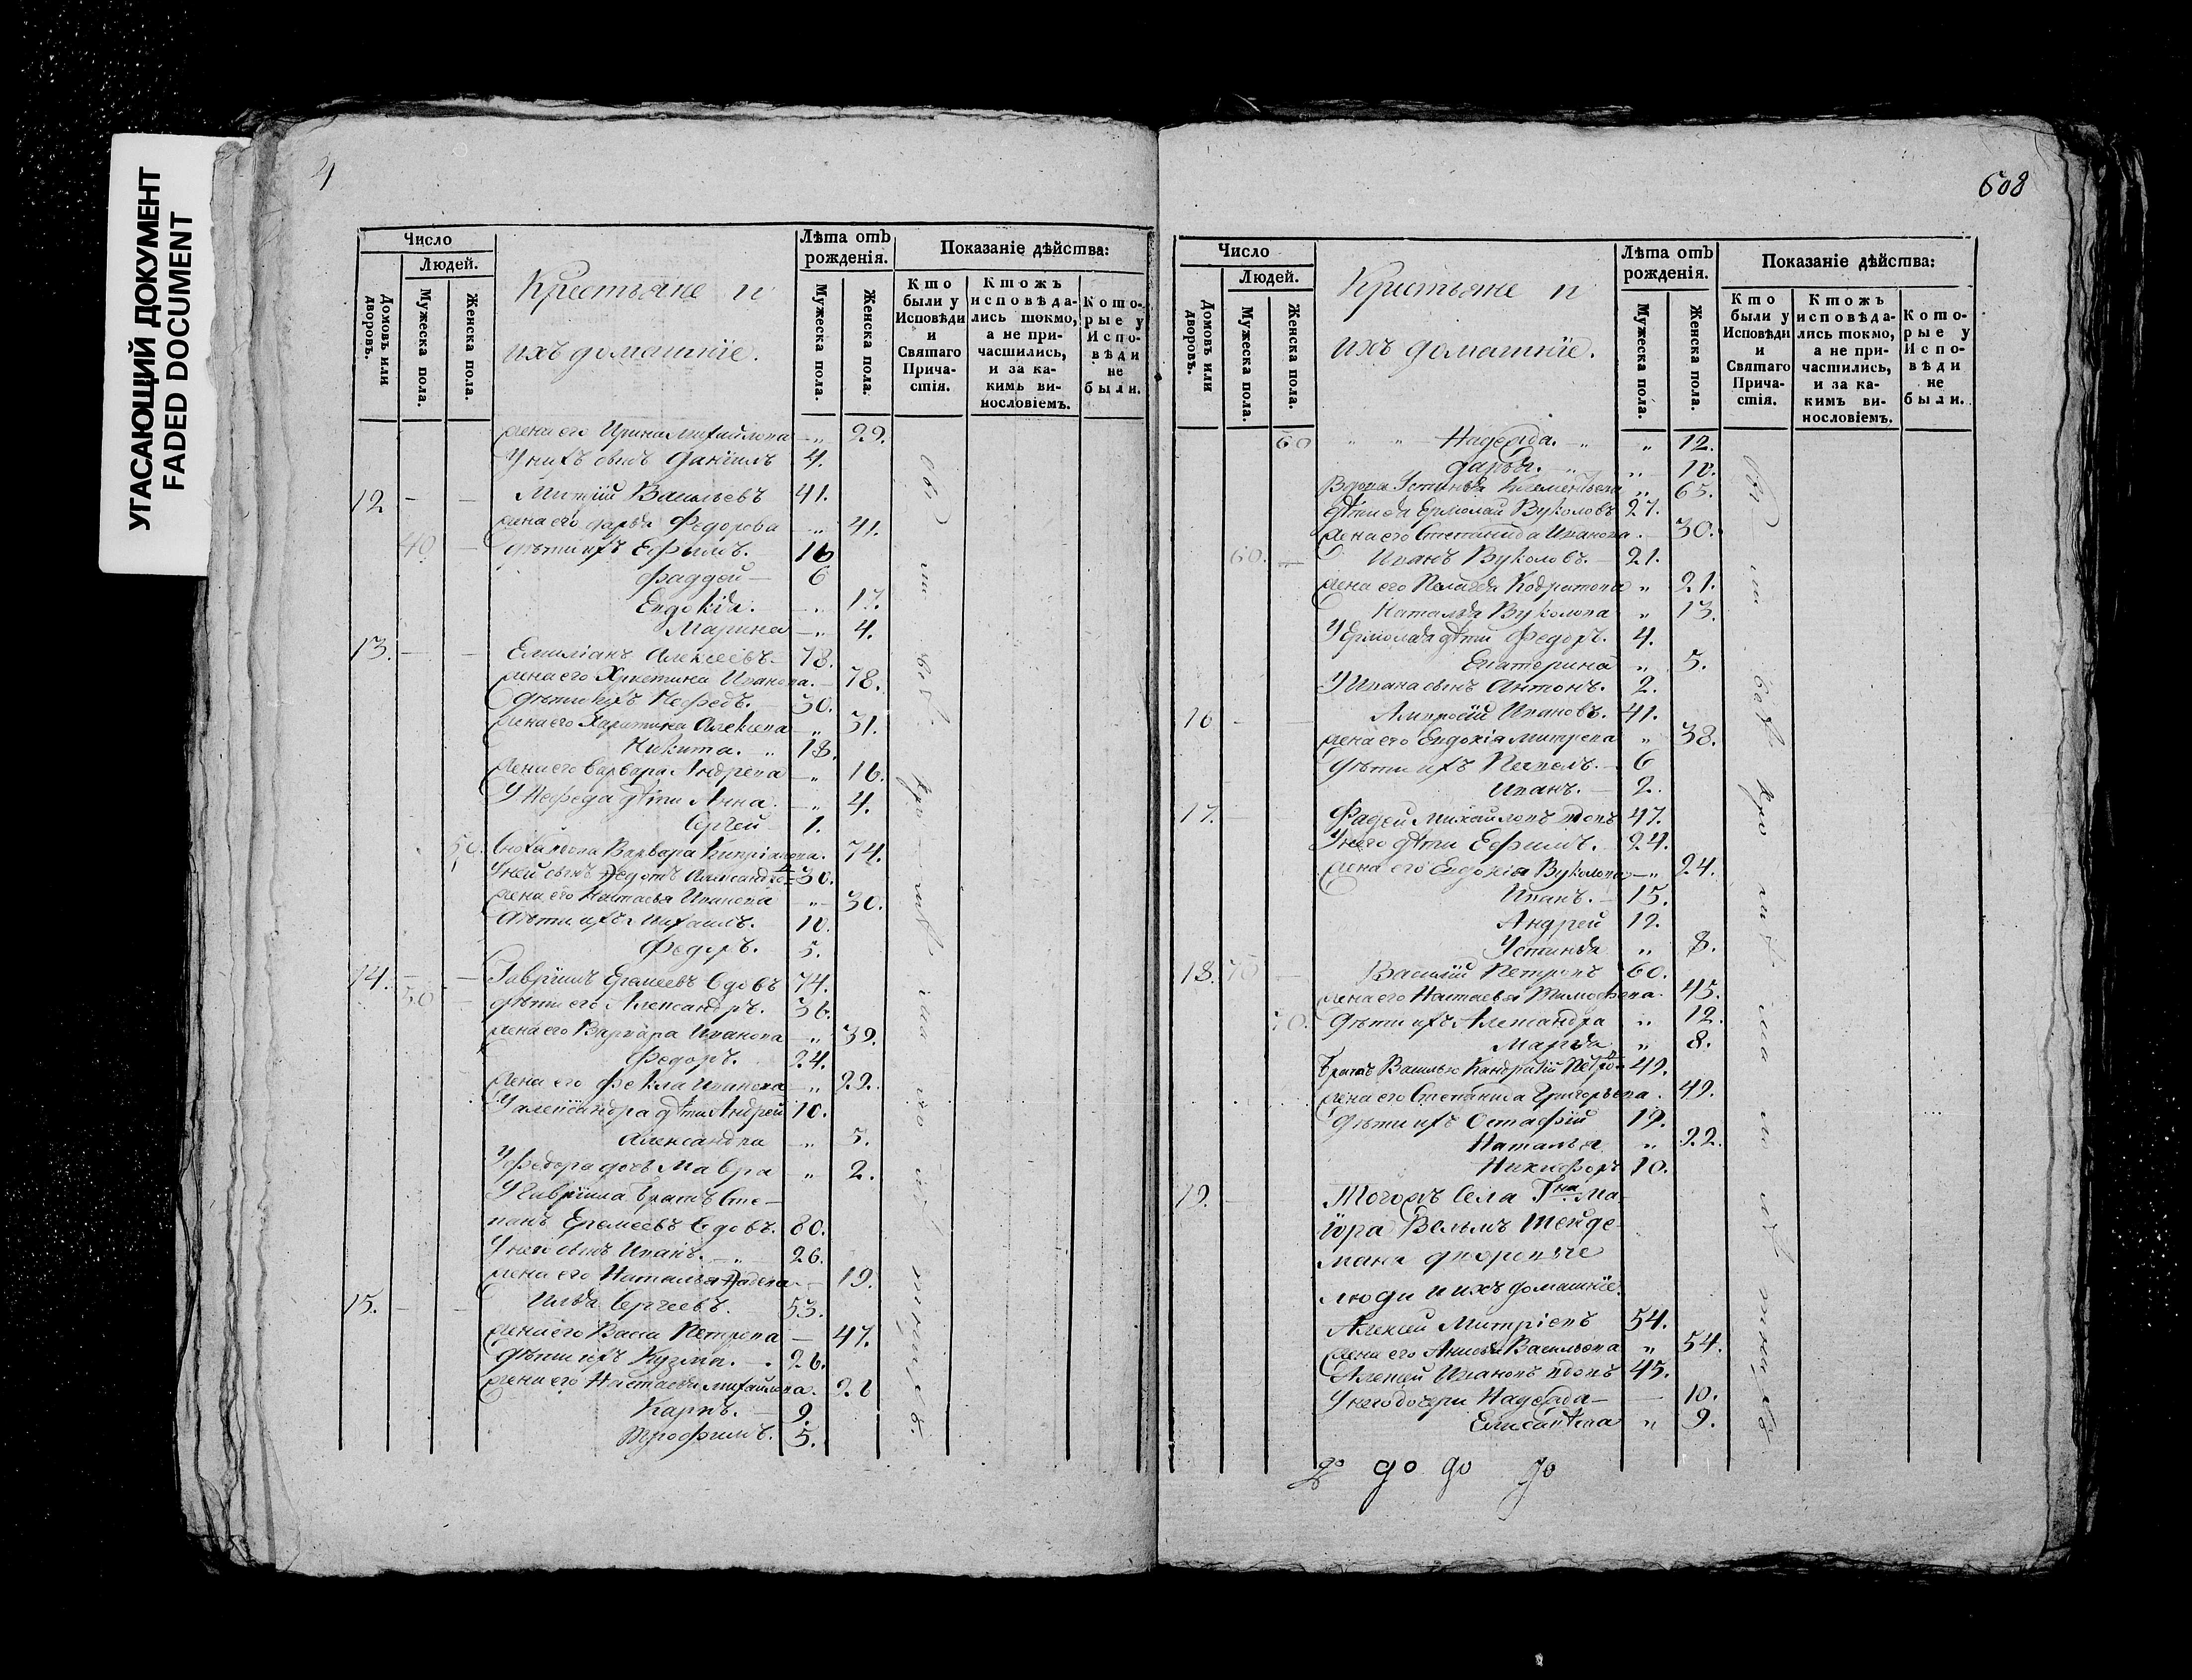 УГАСАЮЩИЙ ДОКУМЕНТ
FADED DOCUMENT
4
Число
Людей.
Домовъ или дворовъ.
Мужеска пола.
Женска пола.
Крестьяне и
ихъ домашніе.
Лѣта отъ рожденія.
Мужеска пола.
Женска пола.
Показаніе дѣйства:
Кто были у Исповѣди и Святаго Причастія.
Ктожъ исповѣдались токмо, а не причастились, и за какимъ винословіемъ.
Которые у Исповѣди не были.
жена его Ирина Михайлова „ 29.
У нихъ сынъ Даніилъ 4.
12 Митрій Васильевъ 41.
жена его Дарья Федорова „ 41.
40 дѣти ихъ Ефимъ. 16
Фаддей 6
Евдокія. „ 17.
Марина „ 4.
13. Емиліанъ Алексеевъ 78.
жена его Христина Иванова. 78.
дѣти ихъ Нефедъ. 30.
жена его Харитина Алексеева „ 31.
Никита. „ 18.
жена его Варвара Андреева „ 16.
У Нефеда дѣти Анна. „ 4.
Сергей 1.
50. Сноха вдова Варвара Кипріанова. 74.
У ней сынъ Федотъ Александровъ 30.
жена его Настасья Иванова „ 30.
дѣти ихъ Михаилъ. 10.
Федоръ. 5.
14. Гавріилъ Еремеевъ вдовъ 74.
50 дѣти его Александръ. 36.
жена его Варвара Иванова „ 39.
Федоръ. 24.
жена его Фекла Иванова „ 22.
У Александра дѣти Андрей 10.
Александра „ 5.
У Федора дочь Мавра „ 2.
У Гавріила братъ Сте-
панъ Еремеевъ вдовъ. 80.
У него сынъ Иванъ. „ 26.
жена его Наталья 19.
15. Илья Сергеевъ. 53.
жена его Васса Петрова 47.
дѣти ихъ Кузма. 26.
жена его Настасья Михайлова. 26
Карпъ. 9.
Трофимъ. 5.
608
Число
Людей.
Домовъ или дворовъ.
Мужеска пола.
Женска пола.
Кристьяне и
ихъ домашніе.
Лѣта отъ рожденія.
Мужеска пола.
Женска пола.
Показаніе дѣйства:
Кто были у Исповѣди и Святаго Причастія.
Ктожъ исповѣдались токмо, а не причастились, и за какимъ винословіемъ.
Которые у Исповѣди не были.
60 „ „ Надежда. „ „ 12.
Дарья. „ „ 10.
Вдова Устинья Климентьева „ 65.
дѣти ея Ермолай Вуколовъ 27.
жена его Степанида Иванова. 30.
60. Иванъ Вуколовъ. 21.
жена его Пелагея Кодратова „ 21.
Наталья Вуколова „ 13.
У Ермолая дѣти Федоръ. 4.
Екатерина „ 5.
У Ивана сынъ Антонъ. 2.
16 Амвросій Ивановъ. 41.
жена его Евдокія Митрева „ 38.
дѣти ихъ Павелъ. 6
Иванъ. 2.
17. Фадей Михайловъ вдовъ 47.
У него дѣти Ефимъ. 24.
жена его Евдокія Вуколова „ 24.
Иванъ. 15.
Андрей 12.
Устинья „ 8.
18. 70 Василій Петровъ 60.
жена его Настасья Тимофеева. 45.
70. дѣти ихъ Александра „ 12.
Марья „ 8.
Братъ Василью Кандратій Петровъ 42.
жена его Степанида Григорьева. 42.
дѣти ихъ Остафій 19.
Наталья „ 22.
Никифоръ 10.
19. Тогожъ села Гна Ма-
іора Вельмъ Шейде-
мана дворовые
люди и ихъ домашніе.
Алексей Митріевъ 54.
жена его Анисья Васильева „ 54.
Алексей Ивановъ вдовъ 45.
У него дочери Надежда 10.
Елисавѣта „ 9.
до до до до